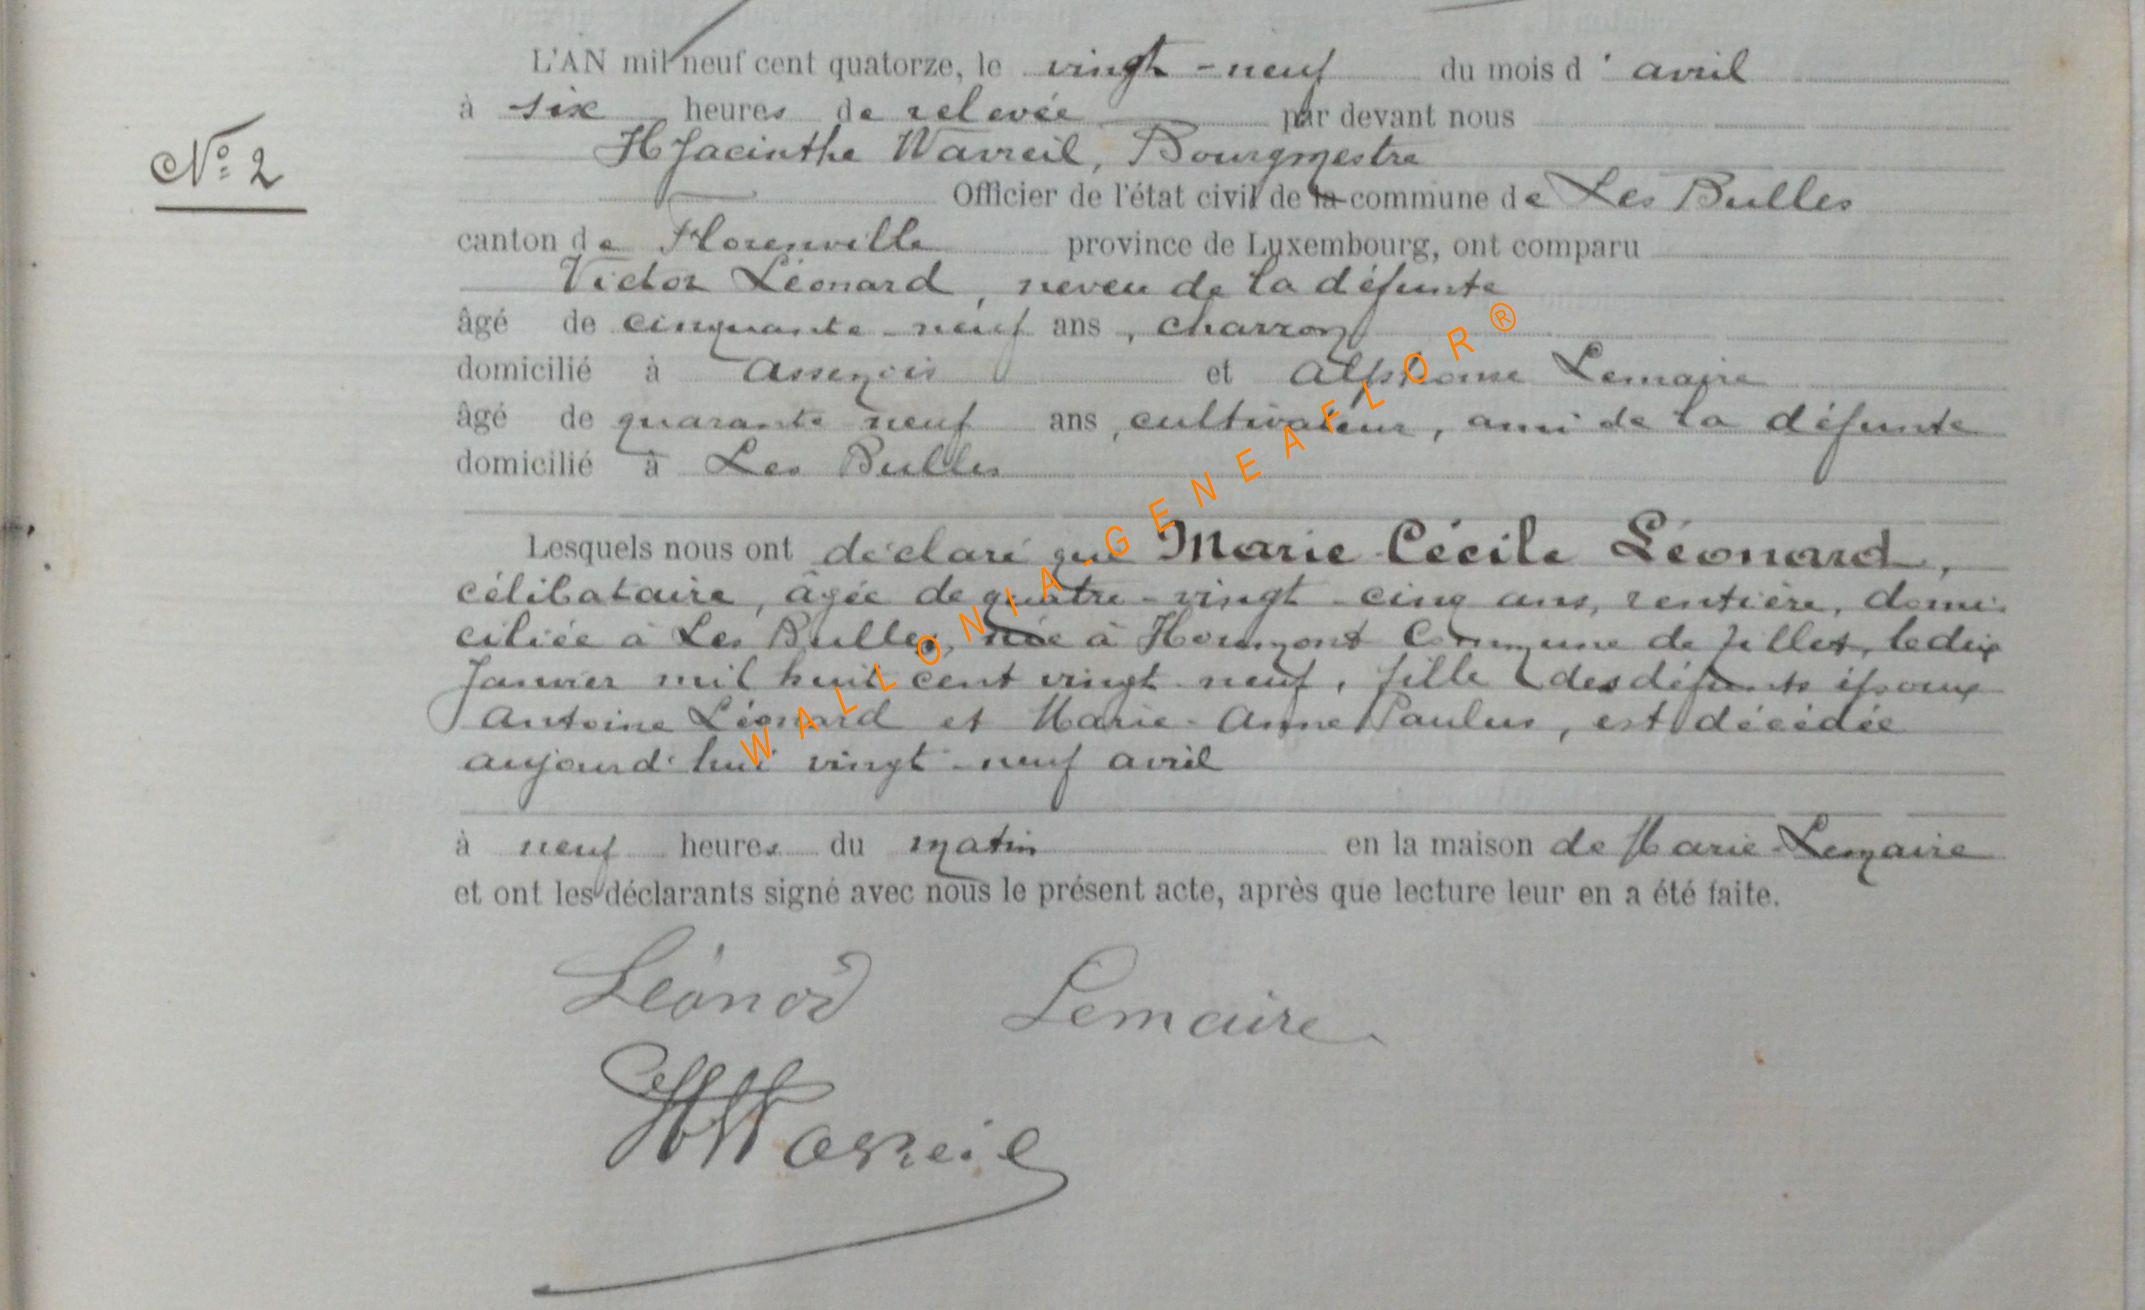 L'AN mil neuf cent quatorze, le vingt-neuf du mois d'avril
à six heures de relevée par devant nous
Nº 2
Hyacinthe Wavreil, Bourgmestre
Officier de l'état civil de la commune de Les Bulles
canton de Florenville province de Luxembourg, ont comparu
Victor Léonard, neveu de la défunte
âgé de cinquante-neuf ans, charron
domicilié à Assenois et Alphonse Lemaire
âgé de quarante neuf ans, cultivateur, ami de la défunte
domicilié à Les Bulles
Lesquels nous ont déclaré que Marie Cécile Léonard,
célibataire, âgée de quatre-vingt-cinq ans, rentière, domi-
ciliée à Les Bulles, née à Houmont Commune de Tillet, le dix
Janvier mil huit cent vingt neuf, fille des défunts époux
Antoine Léonard et Marie-Anne Paulus, est décédée
aujourd'hui vingt-neuf avril
à neuf heures du matin en la maison de Marie Lemaire
et ont les déclarants signé avec nous le présent acte, après que lecture leur en a été faite.
Léonard Lemaire
HWavreil
WALLONIA-GENEAFLOR®